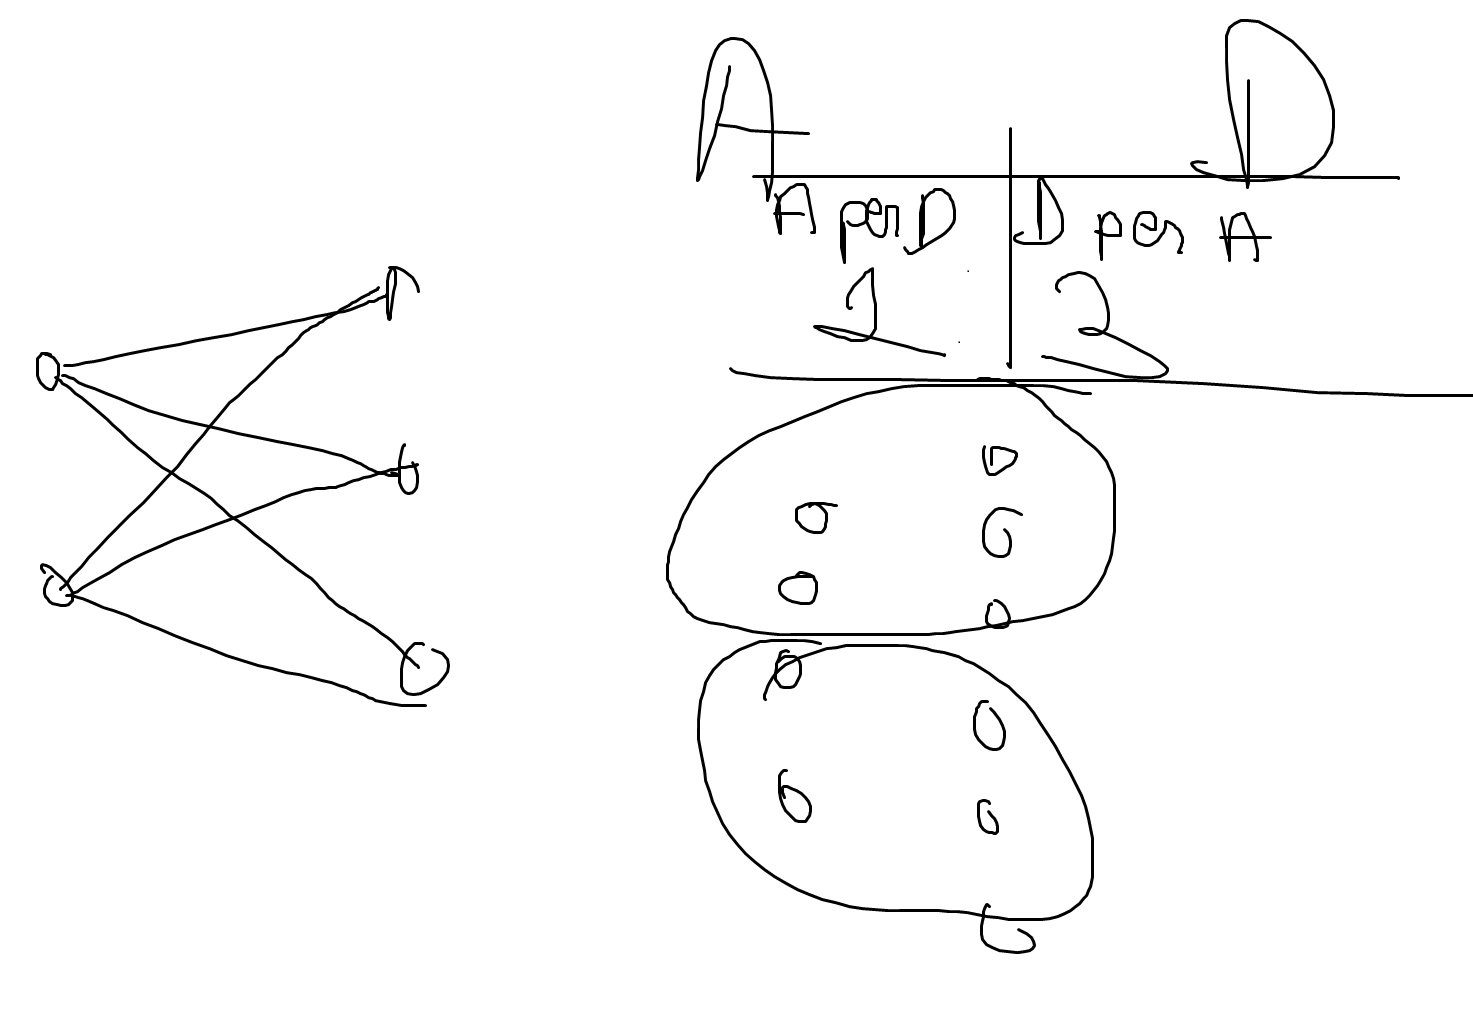 A D
A per D D per A
1 2